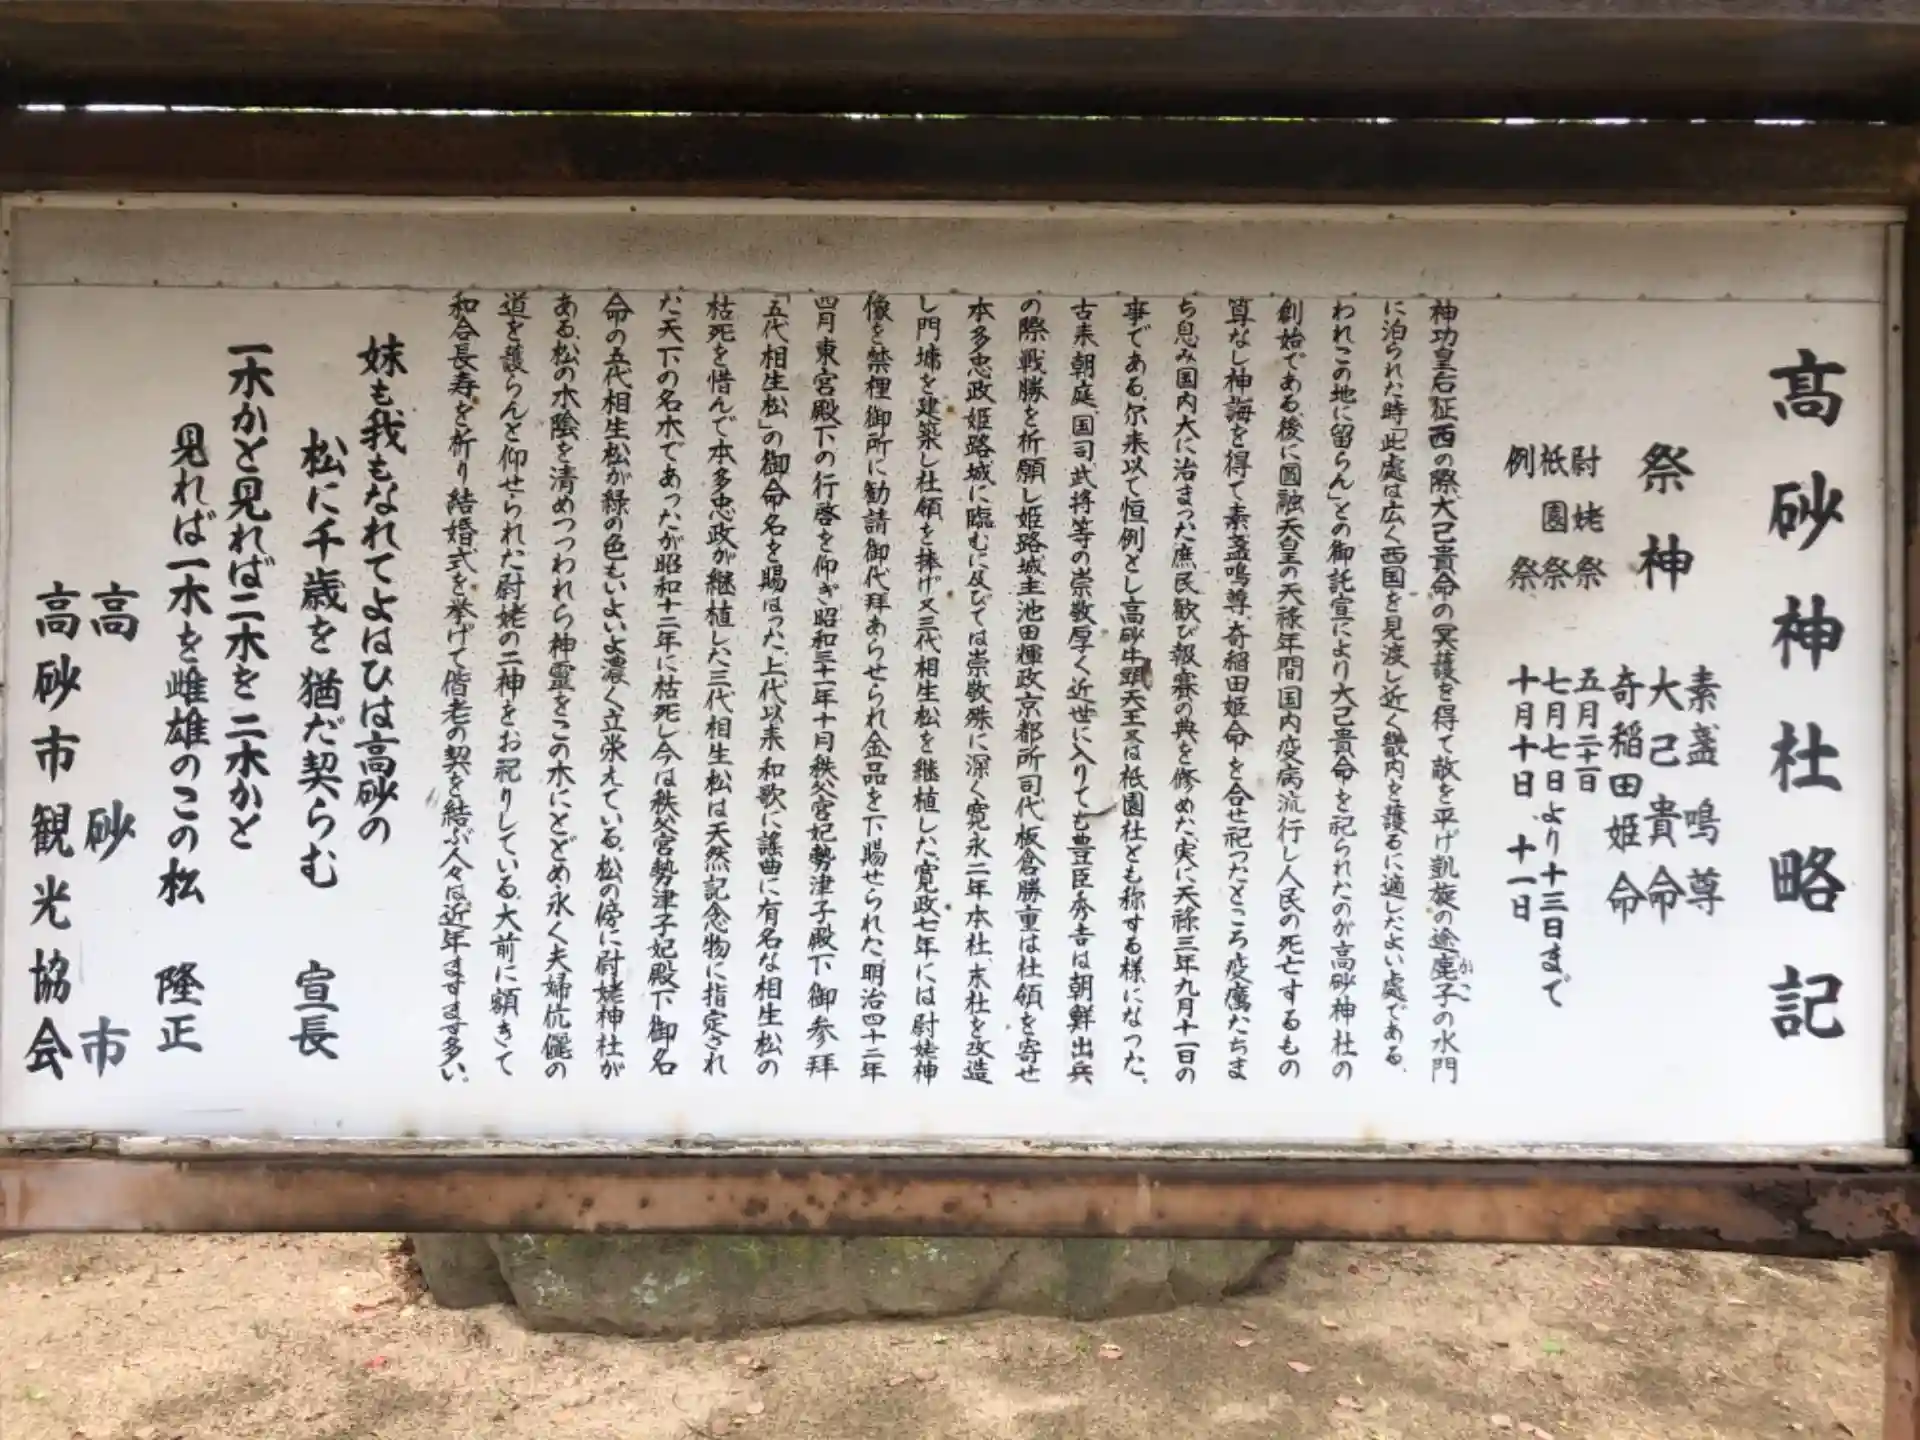 高砂神社略記
祭神
素盞鳴尊
大己貴命
奇稲田姫命
尉姥祭 五月二十一日
祇園祭 七月七日より十三日まで
例祭 十月十日、十一日
神功皇后征西の際、大己貴命の冥護を得て敵を平げ凱旋の途、鹿子の水門
かこ
に泊られた時「此處は広く西国を見渡し近く畿内を護るに適したよい處である。
われこの地に留らん」との御託宣により大己貴命を祀られたのが高砂神社の
創始である。後に圓融天皇の天禄年間国内疫病流行し人民の死亡するもの
算なし神誨を得て素盞鳴尊、奇稲田姫命を合せ祀つたところ疫癘たちま
ち息み国内大に治まった庶民歓び報賽の典を修めた、実に天禄三年九月十一日の
事である。尓来以て恒例とし高砂牛頭天王又は祇園社とも称する様になった。
古来朝庭、国司、武将等の崇敬厚く近世に入りても豊臣秀吉は朝鮮出兵
の際戦勝を祈願し姫路城主池田輝政京都所司代板倉勝重は社領を寄せ
本多忠政姫路城に臨むに及びては崇敬殊に深く寛永二年本社、末社を改造
し門墉を建築し社領を捧げ又三代相生松を継植した、寛政七年には尉姥神
像を禁裡御所に勧請御代拝あらせられ金品を下賜せられた。明治四十二年
四月東宮殿下の行啓を仰ぎ昭和三十一年十月秩父宮妃勢津子殿下御参拝
「五代相生松」の御命名を賜はった。上代以来和歌に謡曲に有名な相生松の
枯死を惜んで本多忠政が継植した三代相生松は天然記念物に指定され
た天下の名木であったが昭和十二年に枯死し今は秩父宮勢津子妃殿下御名
命の五代相生松が緑の色もいよいよ濃く立栄えている。松の傍に尉姥神社が
ある。松の木陰を清めつつわれら神霊をこの木にとどめ永く夫婦伉儷の
道を護らんと仰せられた尉姥の二神をお祀りしている。大前に額きて
和合長寿を祈り結婚式を挙げて偕老の契を結ぶ人々は近年ますます多い。
妹も我もなれてよはひは高砂の
松に千歳を猶だ契らむ 宣長
一木かと見れば二木を二木かと
見れば一木を雌雄のこの松 隆正
高砂市
高砂市観光協会